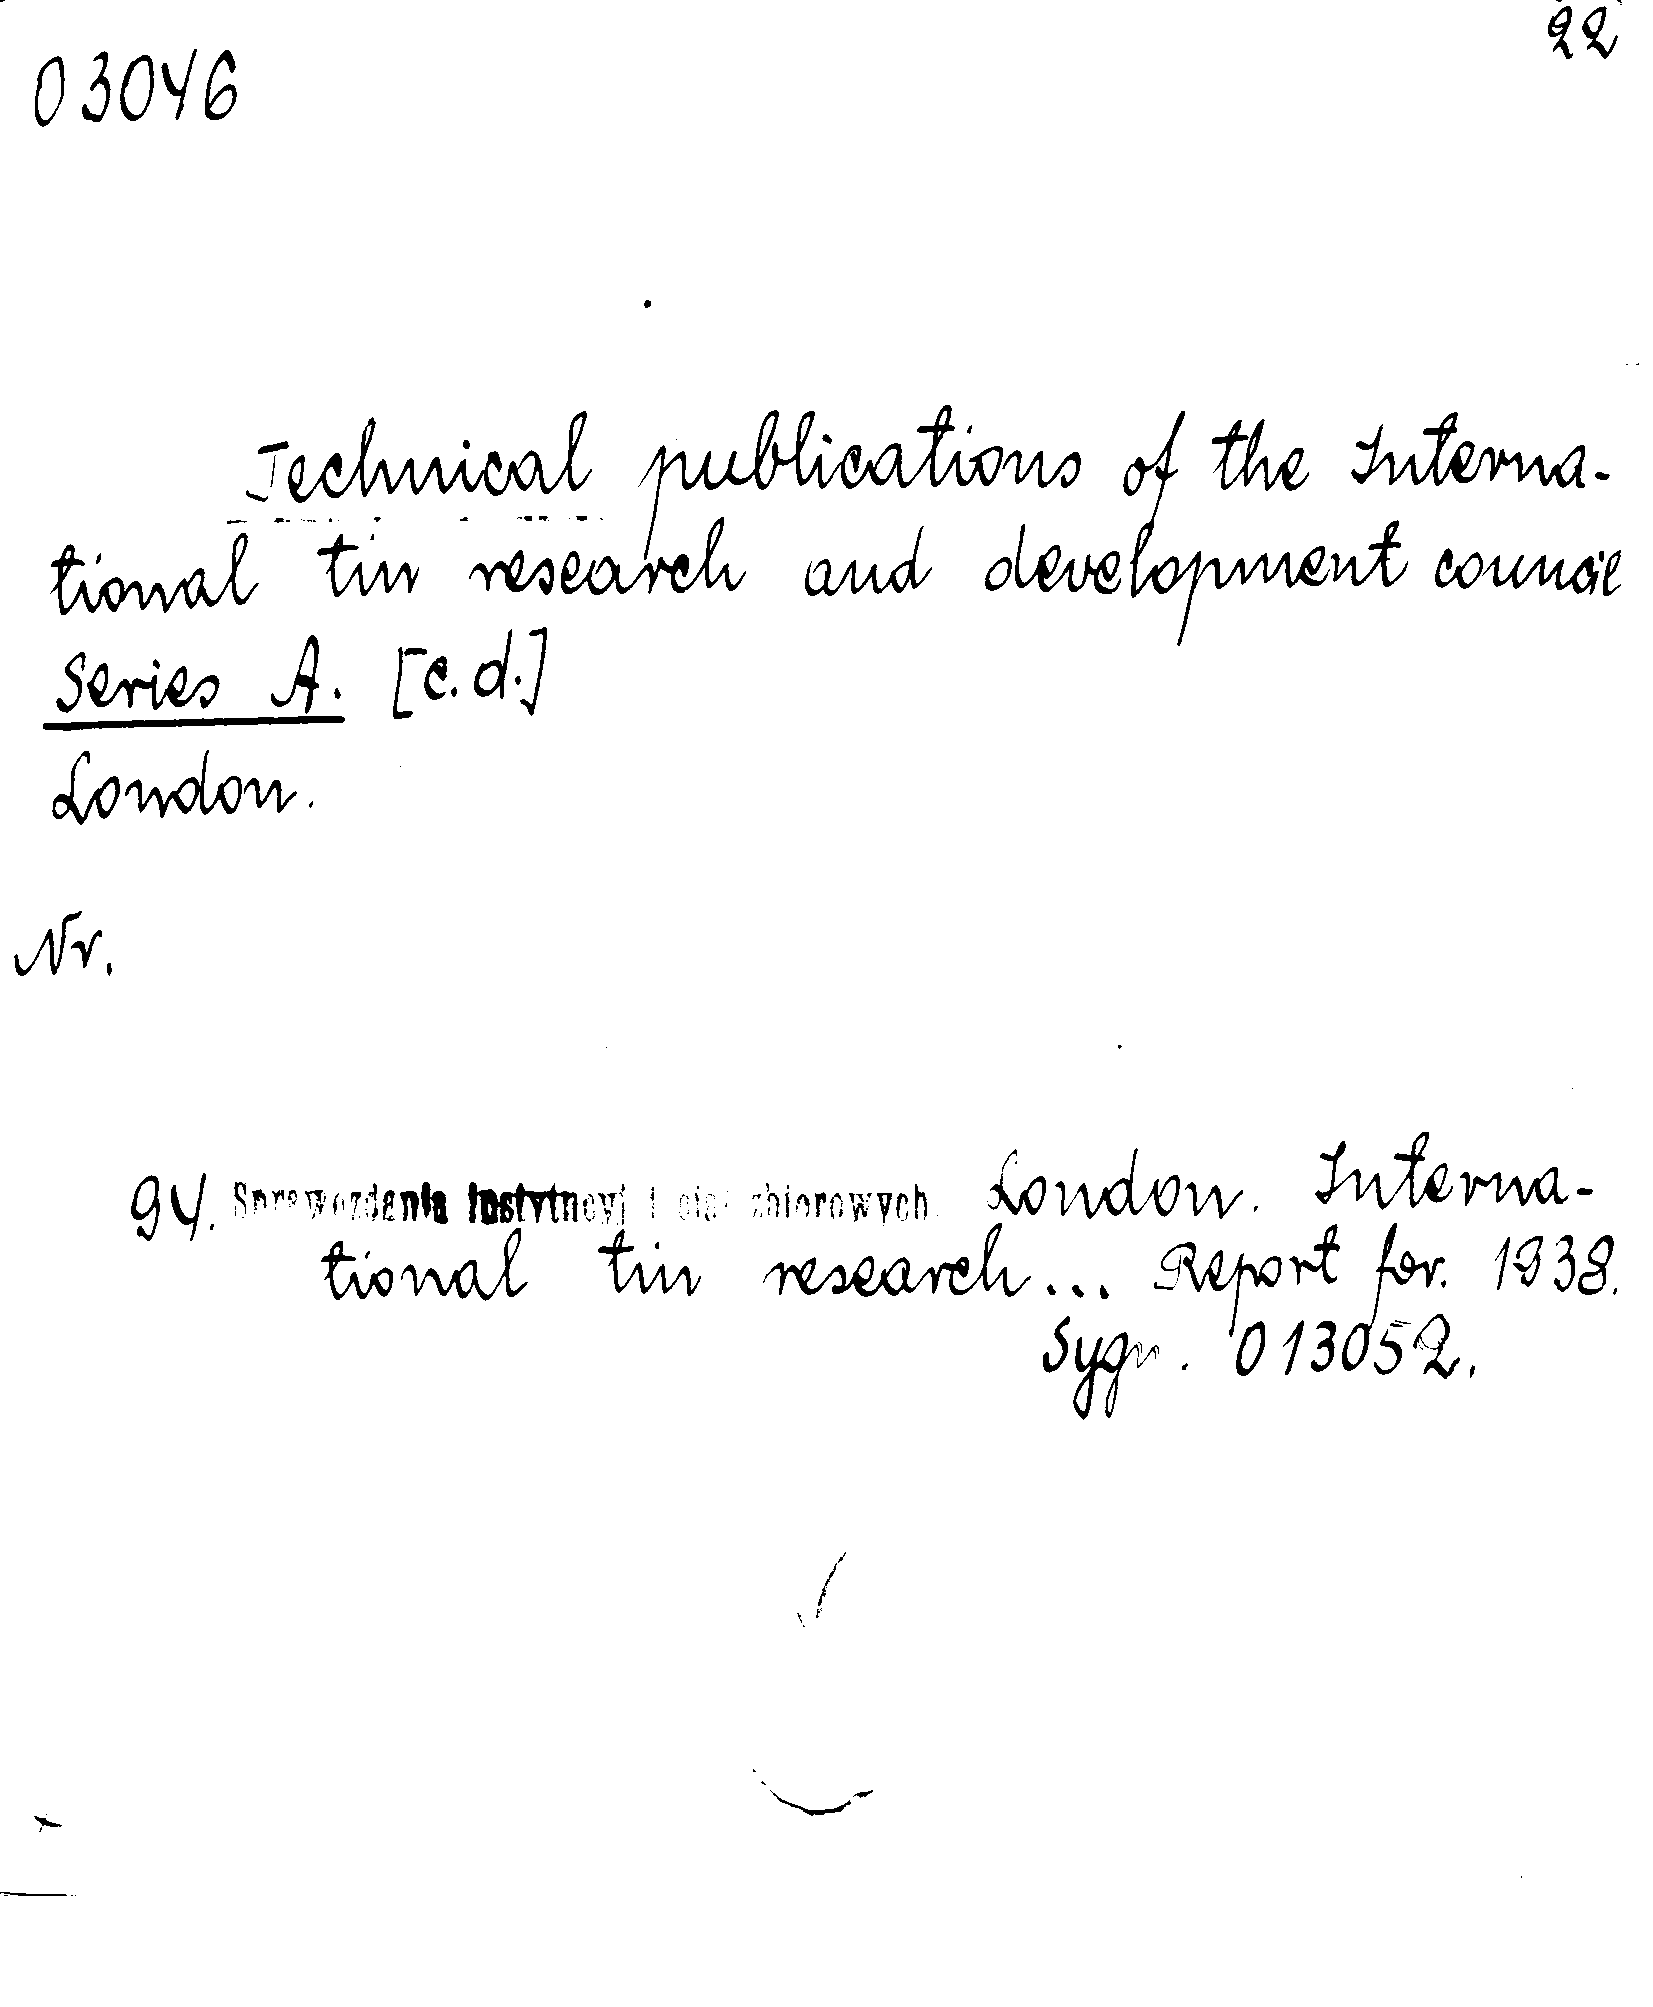 22
03046
Technical publications of the Interna-
tional tin research and development council
Series A. [c.d.]
London.
Nr.
94. Sprawozdania Instytucyj i ciał zbiorowych. London. Interna-
tional tin research... Report for. 1938.
Sygn. 013052.